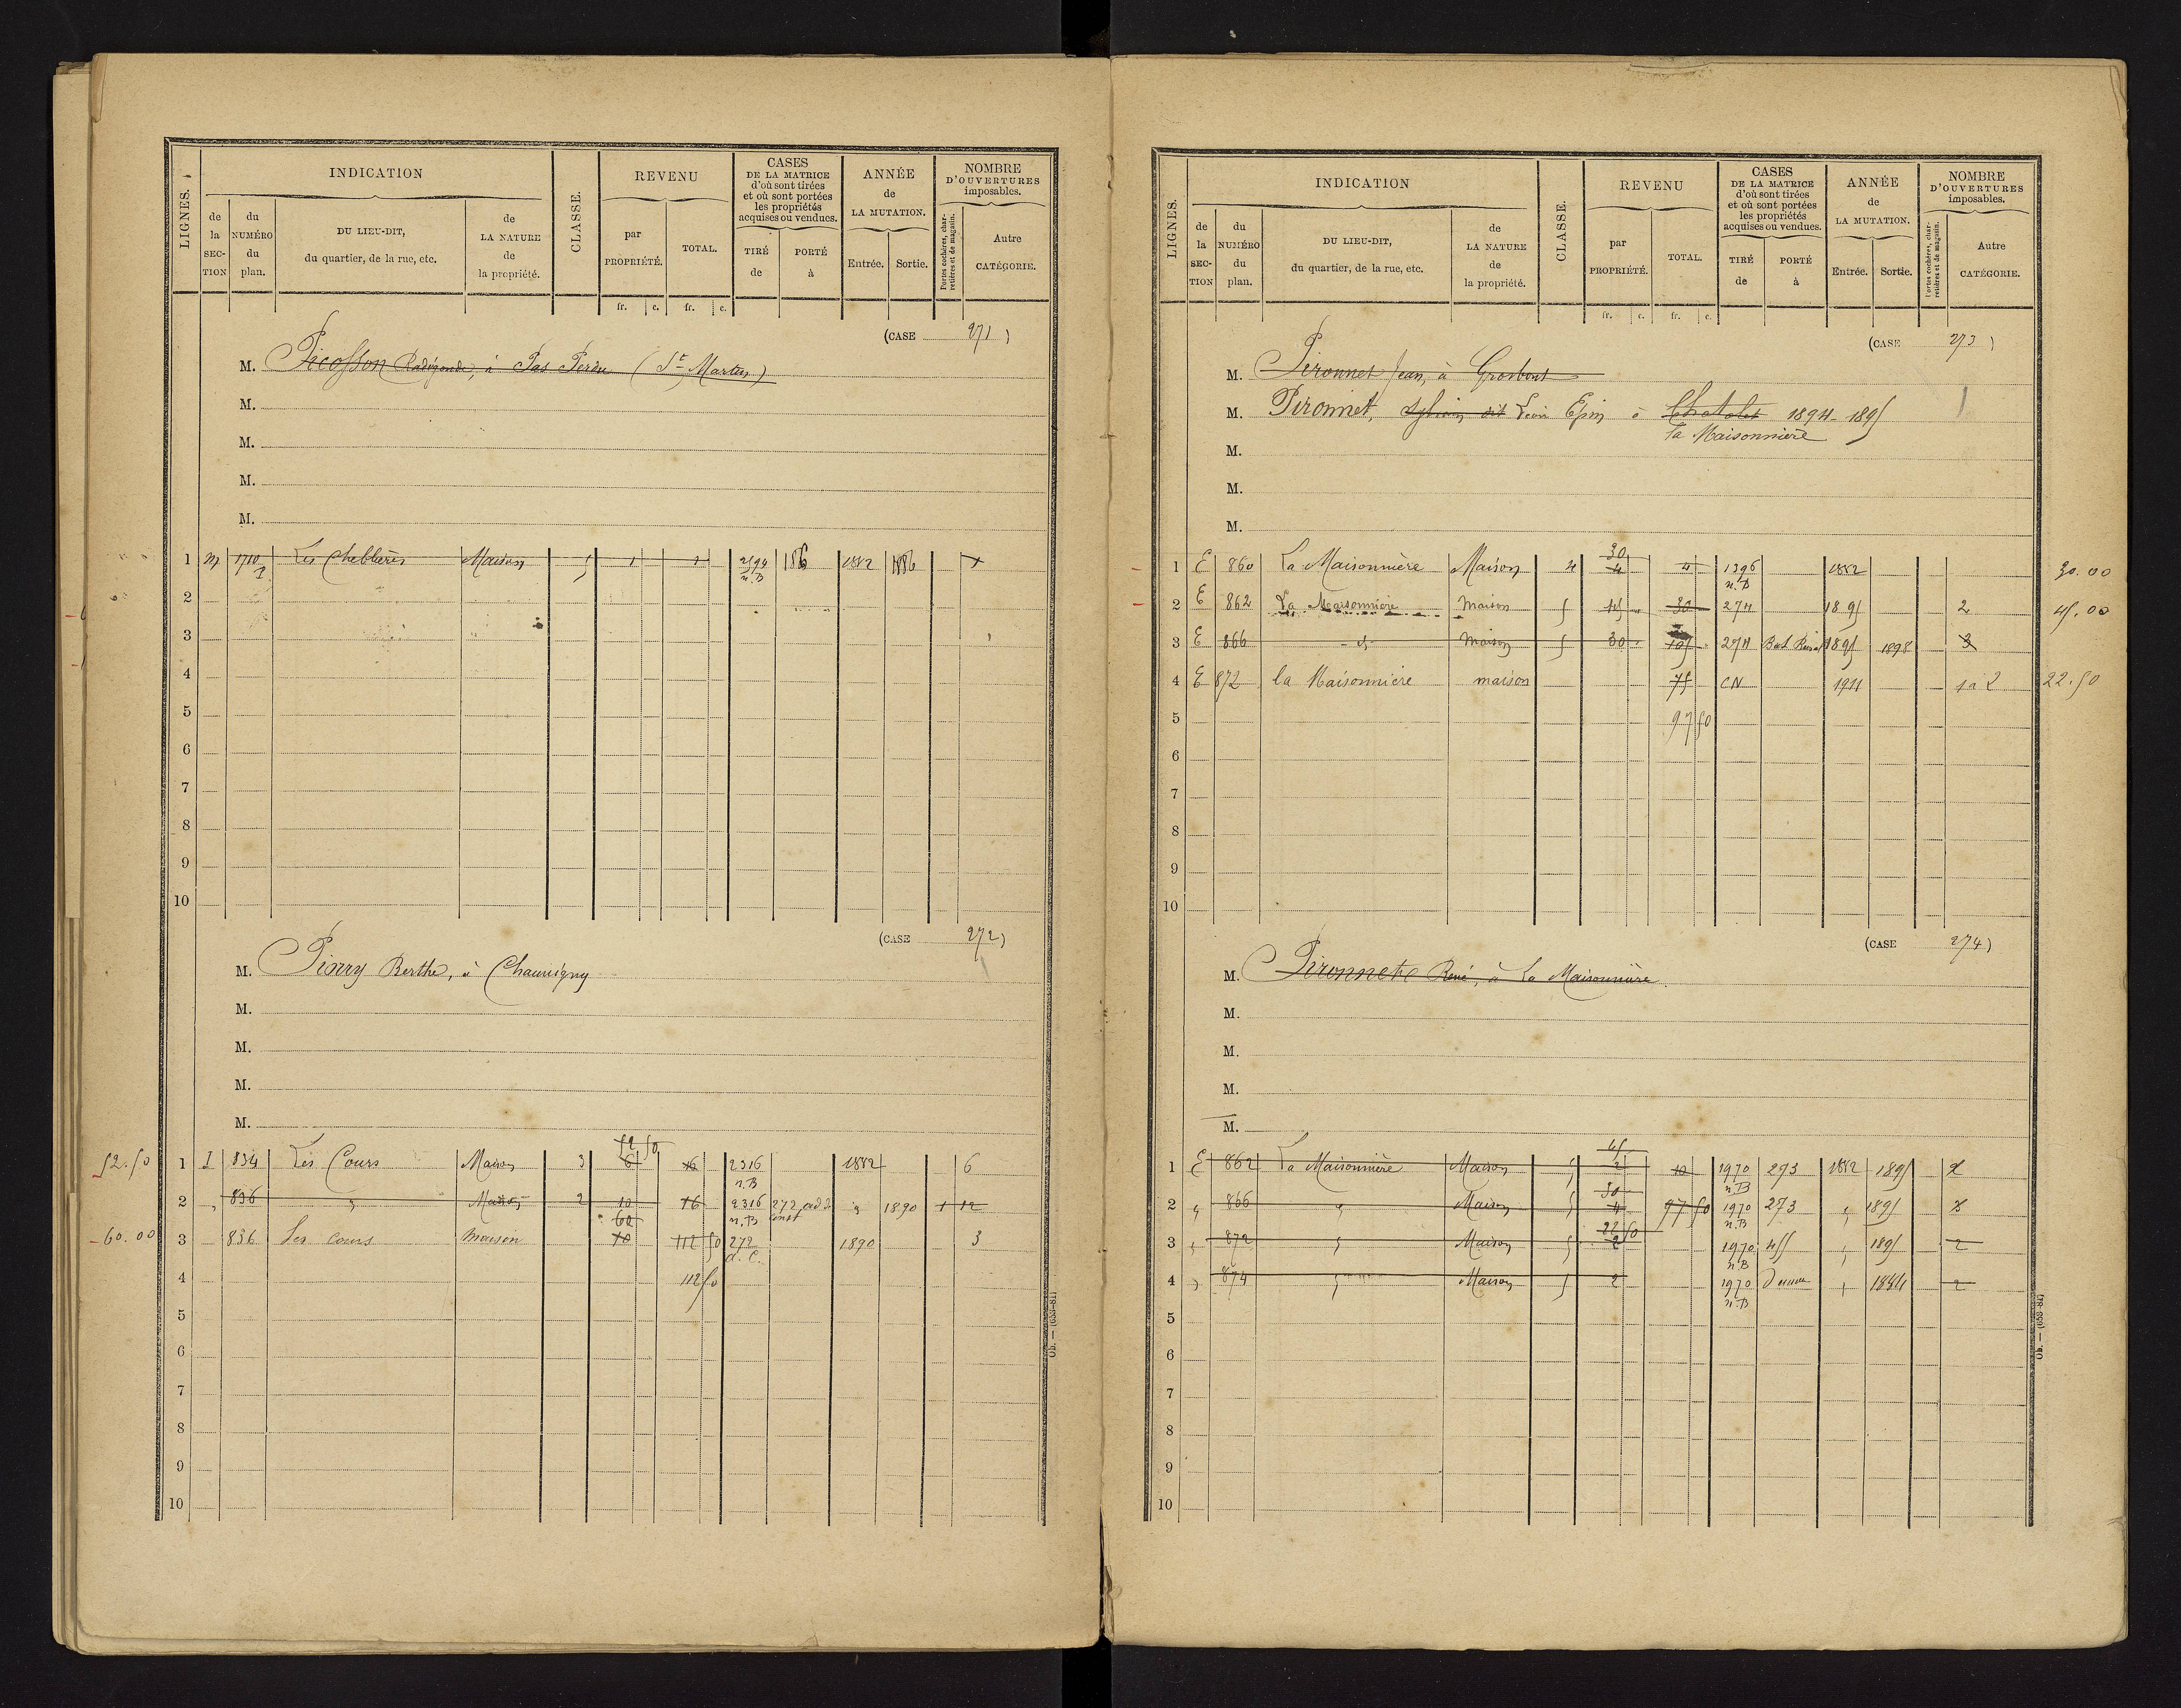 LIGNES. INDICATION CLASSE. REVENU CASES DE LA MATRICE d'où sont tirées et où sont portées les propriétés acquises ou vendues. ANNÉE de LA MUTATION. NOMBRE D'OUVERTURES imposables.
de la SECTION du NUMÉRO du plan. DU LIEU-DIT, du quartier, de la rue, etc. de LA NATURE de la propriété. par PROPRIÉTÉ. TOTAL. TIRÉ de PORTÉ à Entrée. Sortie. Portes cochères, charretières et de magasin. Autre CATÉGORIE.
fr. c. fr. c.
(CASE 271)
M. Picosson Radégonde, à Pas Perdu (St Martin)
M.
M.
M.
M.
1 1710 Les Cheblères Maison 5 1 1 2594 n.B 186 1882 1886 1
2
3
4
5
6
7
8
9
10
(CASE 272)
M. Piorry Berthe, à Chauvigny
M.
M.
M.
M.
52.50
52.50 1 I 834 Les Cours Maison 3 6 16 2316 n.B 1882 6
2 " 836 " Maison 2 10 16 2316 n.B 272 " 1890 1 12
60
-60.00 3 836 Les Cours maison 10 112 50 272 d.C. 1890 3
4 112 50
5
6
7
8
9
10
Ob. — (653-81)
LIGNES. INDICATION CLASSE. REVENU CASES DE LA MATRICE d'où sont tirées et où sont portées les propriétés acquises ou vendues. ANNÉE de LA MUTATION. NOMBRE D'OUVERTURES imposables.
de la SECTION du NUMÉRO du plan. DU LIEU-DIT, du quartier, de la rue, etc. de LA NATURE de la propriété. par PROPRIÉTÉ. TOTAL. TIRÉ de PORTÉ à Entrée. Sortie. Portes cochères, charretières et de magasin. Autre CATÉGORIE.
fr. c. fr. c.
(CASE 273)
M. Pironnet Jean, à Grosbout
M. Pironnet, Sylvain dit à Chatelet 1894-1895
la Maisonnière
M.
M.
M.
30
1 E 860 La Maisonnière Maison 4 4 4 1396 n.B 1882 30.00
2 E 862 La Maisonnière Maison 5 45 30 274 1895 2 45.00
3 E 866 - d- Maison 5 30 105 274 Bat Rural 1895 1898 3
4 E 872 la Maisonnière maison 75 CN 1911 1 à 2 22.50
5 97 50
6
7
8
9
10
(CASE 274)
M. Pironnet René, à La Maisonnière
M.
M.
M.
M.
45
1 E 862 La Maisonnière Maison 5 2 10 1970 n.B 273 1882 1895 2
30
2 " 866 " Maison 5 4 97 50 1970 n.B 273 " 1895 3
22 50
3 " 872 " Maison 5 2 1970 n.B 455 " 1895 2
4 " 874 " Maison 5 2 1970 n.B " 1884 2
5
6
7
8
9
10
Ob. — (653-81)